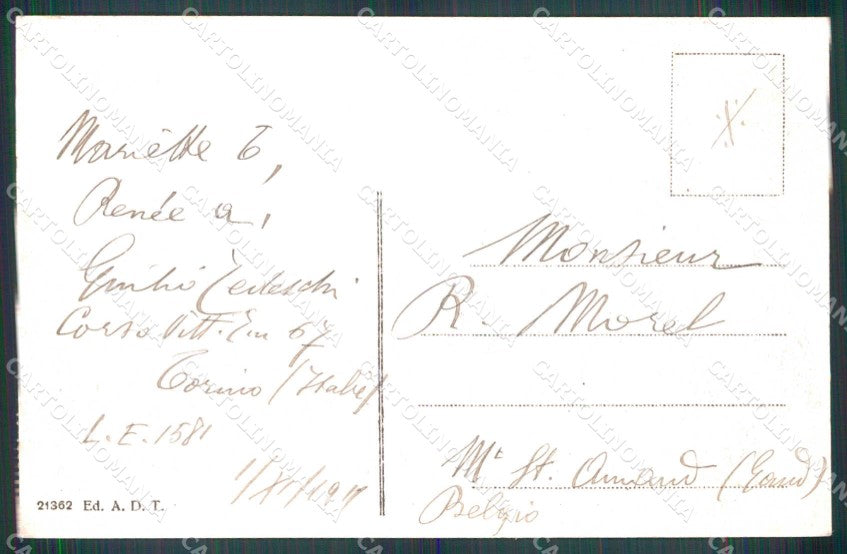 Mariette T,
Renée a,
Giulio Tedeschi
Corso Vitt. Em 67
Torino (Italie)
L. E. 1581
21362 Ed. A. D. T.
X
Monsieur
R. Morel
Mt St. Amand (Gand)
Belgio
CARTOLINOMANIA